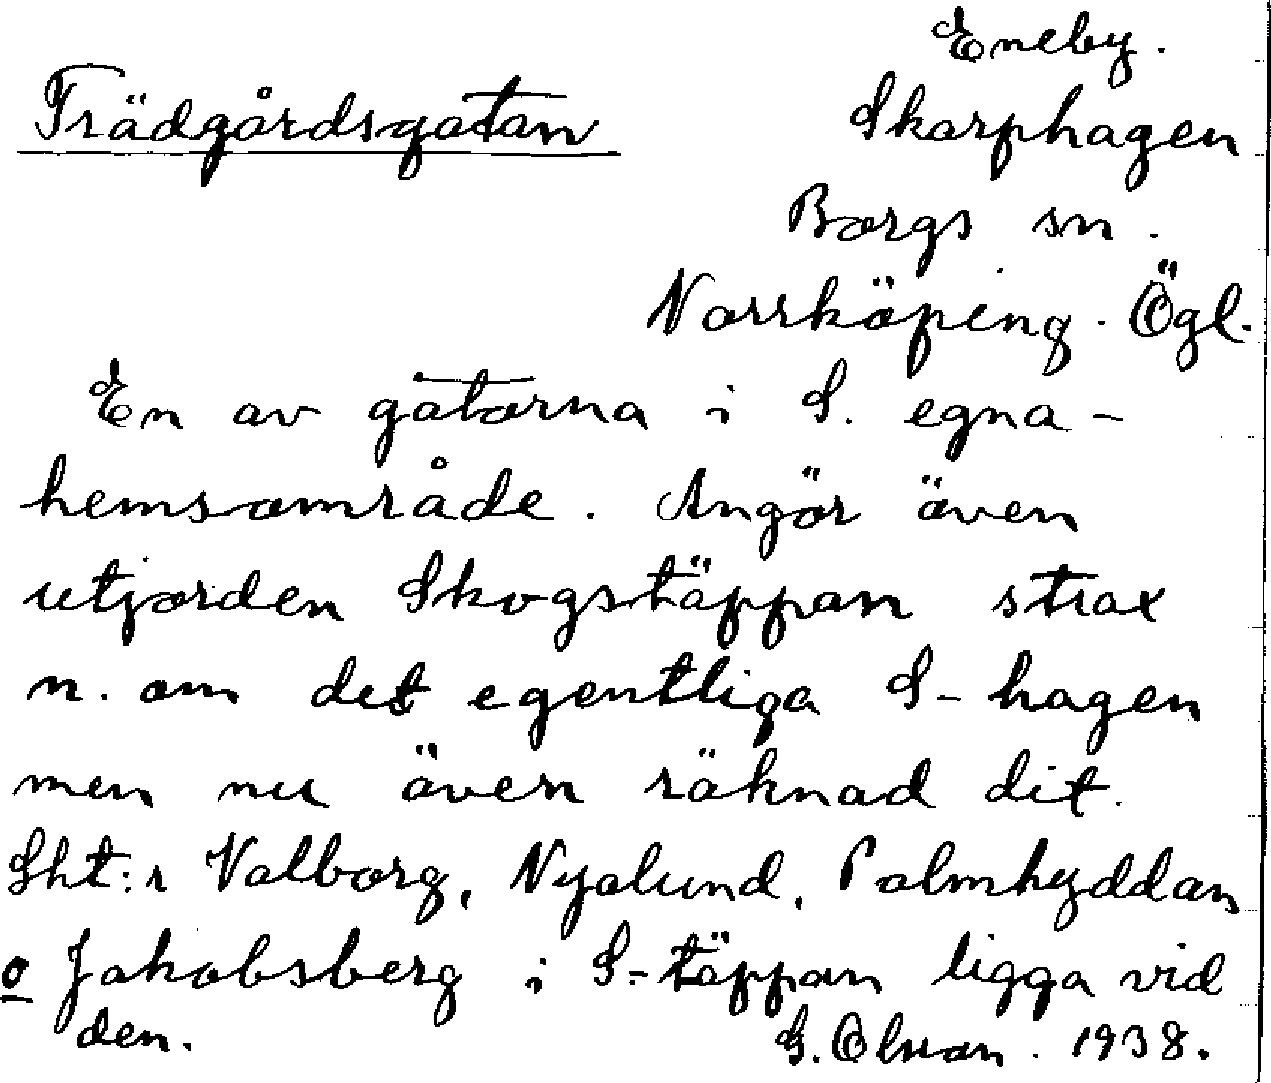 Eneby.
Trädgårdsgatan Skarphagen
Borgs sn.
Norrköping. Ögl.
En av gatorna i S. egna-
hemsområde. Angör även
utjorden Skogstäppan strax
n. om det egentliga S-hagen
men nu även räknad dit.
Sht:r Valborg, Nyalund, Palmhyddan
o Jakobsberg i S-täppan ligga vid
den. G. Olson. 1938.